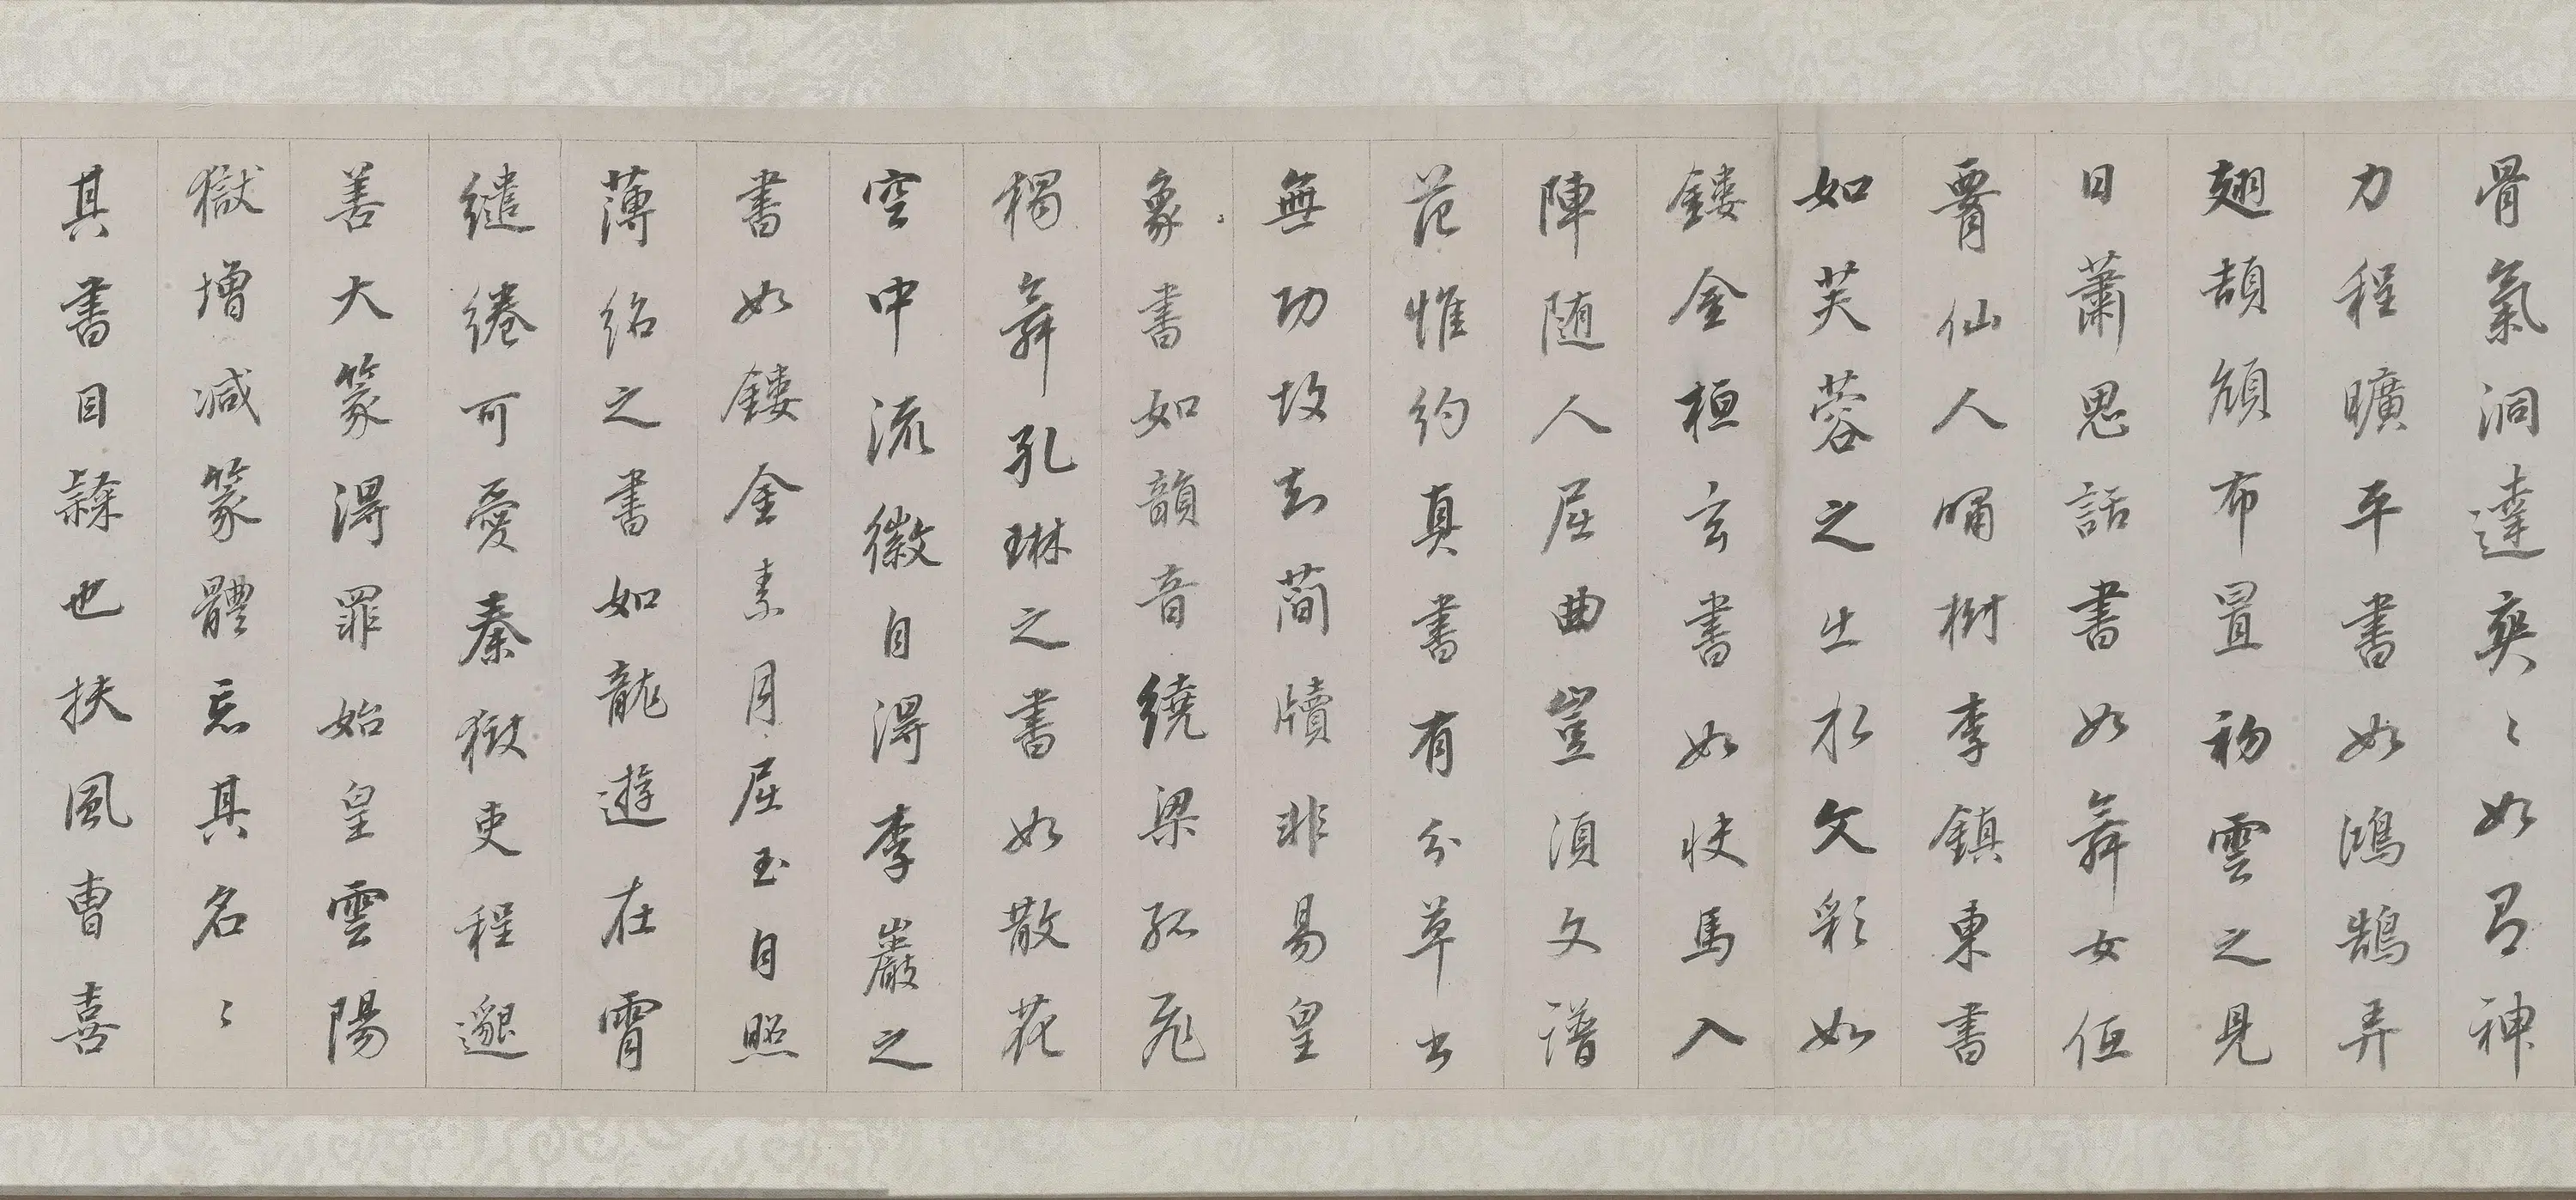 骨氣洞達爽〻如有神
力程曠平書如鴻鵠弄
翅頡頏布置初雲之見
日蕭思話書如舞女低
署仙人嘯樹李鎮東書
如芙蓉之出水文彩如
鏤金桓玄書如快馬入
陣随人屈曲豈須文譜
范惟約真書有分草出
無功故知簡牘非易皇
象書如韻音繞梁孤飛
獨舞孔琳之書如散花
空中流徽自得李巖之
書如鏤金素月屈玉自照
薄紹之書如龍遊在霄
繾綣可愛秦獄吏程邈
善大篆得罪始皇雲陽
獄增减篆體忘其名〻
其書曰隸也扶風曹喜